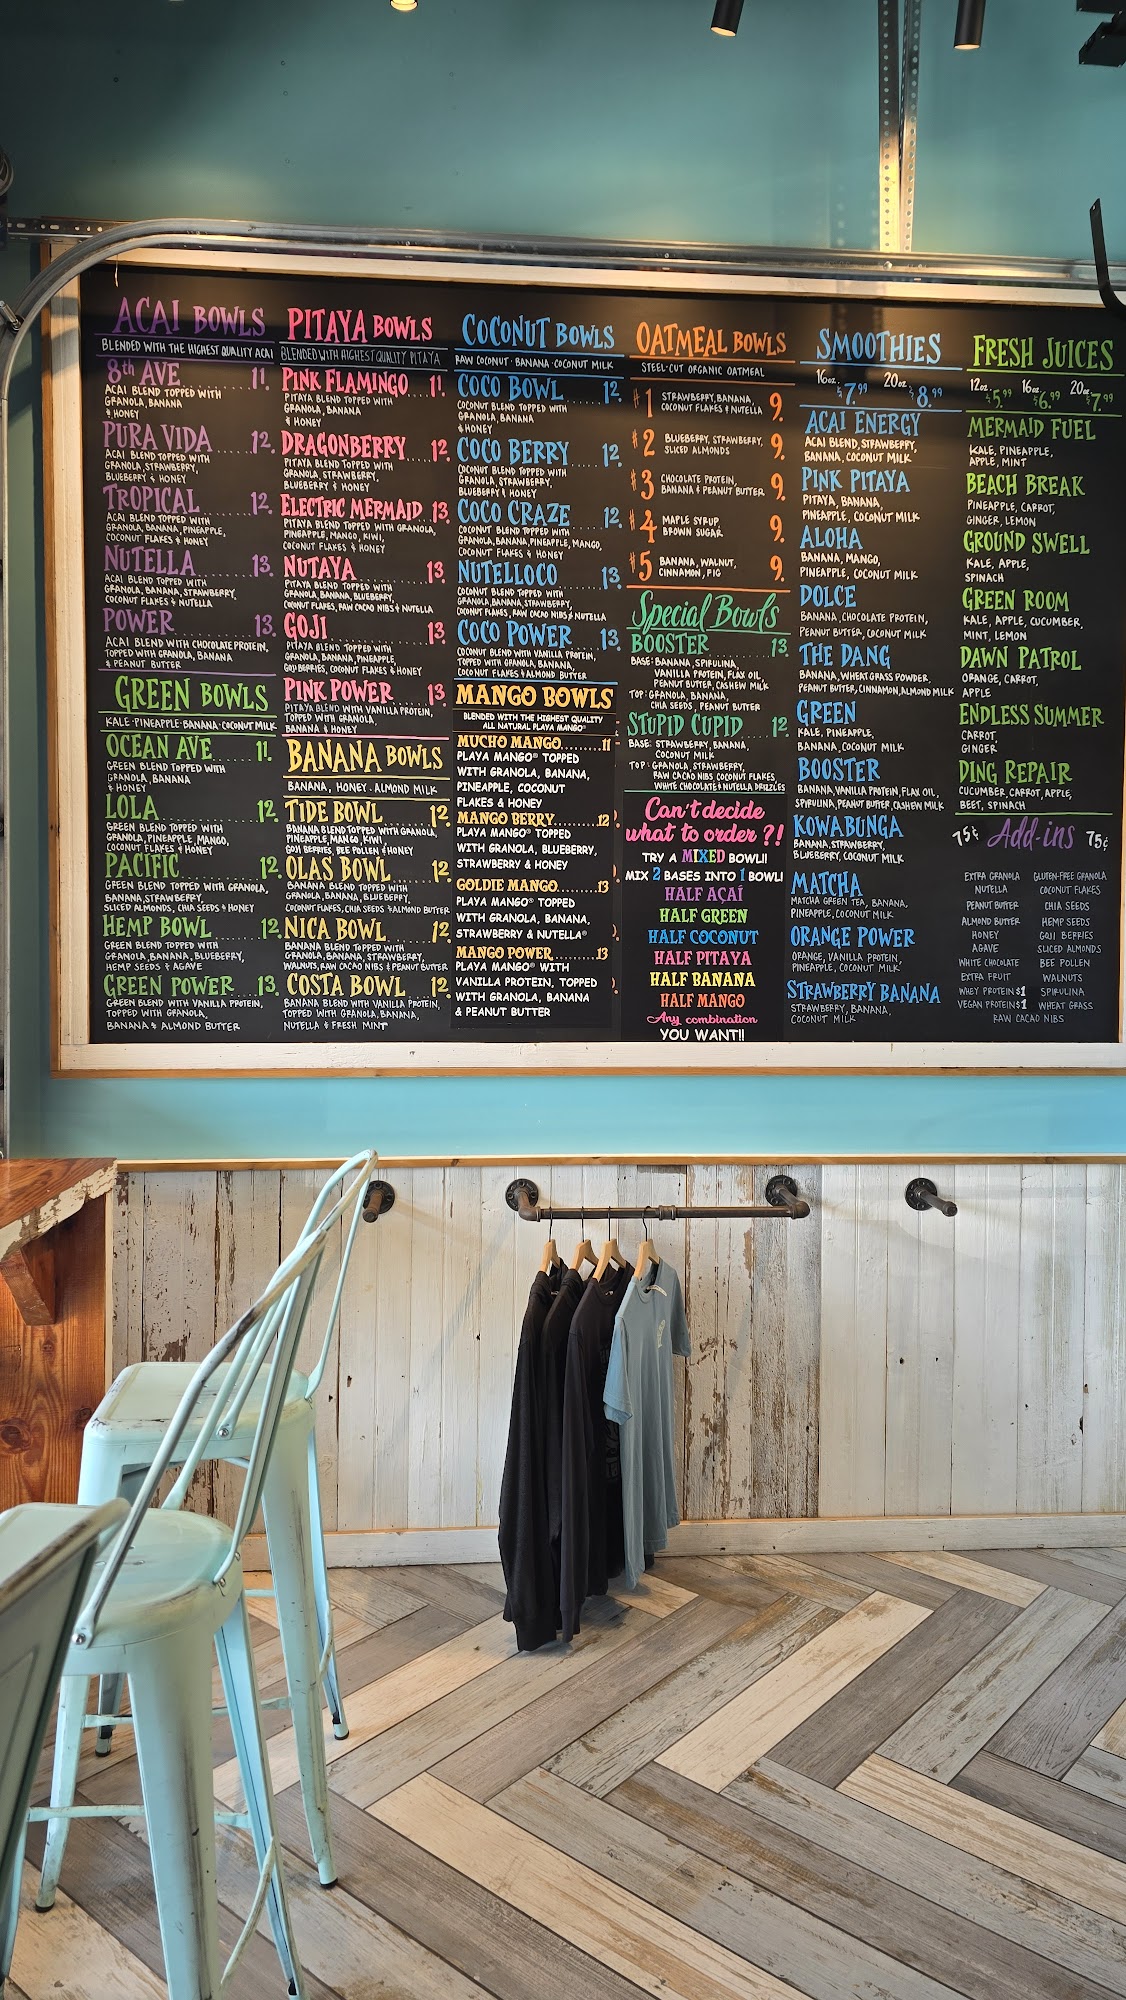 ACAI BOWLS
BLENDED WITH THE HIGHEST QUALITY ACAI
8th AVE 11.
ACAI BLEND TOPPED WITH
GRANOLA, BANANA
& HONEY
PURA VIDA 12.
ACAI BLEND TOPPED WITH
GRANOLA, STRAWBERRY,
BLUEBERRY & HONEY
TROPICAL 12.
ACAI BLEND TOPPED WITH
GRANOLA, BANANA, PINEAPPLE,
COCONUT FLAKES & HONEY
NUTELLA 13.
ACAI BLEND TOPPED WITH
GRANOLA, BANANA, STRAWBERRY,
COCONUT FLAKES & NUTELLA
POWER 13.
ACAI BLEND WITH CHOCOLATE PROTEIN,
TOPPED WITH GRANOLA, BANANA
& PEANUT BUTTER
GREEN BOWLS
KALE · PINEAPPLE · BANANA · COCONUT MILK
OCEAN AVE 11.
GREEN BLEND TOPPED WITH
GRANOLA, BANANA
& HONEY
LOLA 12.
GREEN BLEND TOPPED WITH
GRANOLA, PINEAPPLE, MANGO,
COCONUT FLAKES & HONEY
PACIFIC 12.
GREEN BLEND TOPPED WITH GRANOLA,
BANANA, STRAWBERRY,
SLICED ALMONDS, CHIA SEEDS & HONEY
HEMP BOWL 12.
GREEN BLEND TOPPED WITH
GRANOLA, BANANA, BLUEBERRY,
HEMP SEEDS & AGAVE
GREEN POWER 13.
GREEN BLEND WITH VANILLA PROTEIN,
TOPPED WITH GRANOLA,
BANANA & ALMOND BUTTER
PITAYA BOWLS
BLENDED WITH HIGHEST QUALITY PITAYA
PINK FLAMINGO 11.
PITAYA BLEND TOPPED WITH
GRANOLA, BANANA
& HONEY
DRAGONBERRY 12.
PITAYA BLEND TOPPED WITH
GRANOLA, STRAWBERRY,
BLUEBERRY & HONEY
ELECTRIC MERMAID 13.
PITAYA BLEND TOPPED WITH GRANOLA,
PINEAPPLE, MANGO, KIWI,
COCONUT FLAKES & HONEY
NUTAYA 13.
PITAYA BLEND TOPPED WITH
GRANOLA, BANANA, BLUEBERRY,
COCONUT FLAKES, RAW CACAO NIBS & NUTELLA
GOJI 13.
PITAYA BLEND TOPPED WITH
GRANOLA, BANANA, PINEAPPLE,
GOJI BERRIES, COCONUT FLAKES & HONEY
PINK POWER 13.
PITAYA BLEND WITH VANILLA PROTEIN,
TOPPED WITH GRANOLA,
BANANA & HONEY
BANANA BOWLS
BANANA, HONEY · ALMOND MILK
TIDE BOWL 12.
BANANA BLEND TOPPED WITH GRANOLA,
PINEAPPLE, MANGO, KIWI,
GOJI BERRIES, BEE POLLEN & HONEY
OLAS BOWL 12.
BANANA BLEND TOPPED WITH
GRANOLA, BANANA, BLUEBERRY,
COCONUT FLAKES, CHIA SEEDS & ALMOND BUTTER
NICA BOWL 12.
BANANA BLEND TOPPED WITH
GRANOLA, BANANA, STRAWBERRY,
WALNUTS, RAW CACAO NIBS & PEANUT BUTTER
COSTA BOWL 12.
BANANA BLEND WITH VANILLA PROTEIN,
TOPPED WITH GRANOLA, BANANA,
NUTELLA & FRESH MINT
COCONUT BOWLS
RAW COCONUT · BANANA · COCONUT MILK
COCO BOWL 12.
COCONUT BLEND TOPPED WITH
GRANOLA, BANANA
& HONEY
COCO BERRY 12.
COCONUT BLEND TOPPED WITH
GRANOLA, STRAWBERRY,
BLUEBERRY & HONEY
COCO CRAZE 12.
COCONUT BLEND TOPPED WITH
GRANOLA, BANANA, PINEAPPLE, MANGO,
COCONUT FLAKES & HONEY
NUTELLOCO 13.
COCONUT BLEND TOPPED WITH
GRANOLA, BANANA, STRAWBERRY,
COCONUT FLAKES, RAW CACAO NIBS & NUTELLA
COCO POWER 13.
COCONUT BLEND WITH VANILLA PROTEIN,
TOPPED WITH GRANOLA, BANANA,
COCONUT FLAKES & ALMOND BUTTER
MANGO BOWLS
BLENDED WITH THE HIGHEST QUALITY
ALL NATURAL PLAYA MANGO®
MUCHO MANGO.........11
PLAYA MANGO® TOPPED
WITH GRANOLA, BANANA,
PINEAPPLE, COCONUT
FLAKES & HONEY
MANGO BERRY.........12
PLAYA MANGO® TOPPED
WITH GRANOLA, BLUEBERRY,
STRAWBERRY & HONEY
GOLDIE MANGO........13
PLAYA MANGO® TOPPED
WITH GRANOLA, BANANA,
STRAWBERRY & NUTELLA®
MANGO POWER.........13
PLAYA MANGO® WITH
VANILLA PROTEIN, TOPPED
WITH GRANOLA, BANANA
& PEANUT BUTTER
OATMEAL BOWLS
STEEL-CUT ORGANIC OATMEAL
#1 STRAWBERRY, BANANA, 9.
COCONUT FLAKES & NUTELLA
#2 BLUEBERRY, STRAWBERRY, 9.
SLICED ALMONDS
#3 CHOCOLATE PROTEIN, 9.
BANANA & PEANUT BUTTER
#4 MAPLE SYRUP, 9.
BROWN SUGAR
#5 BANANA, WALNUT, 9.
CINNAMON, FIG
Special Bowls
BOOSTER 13.
BASE: BANANA, SPIRULINA,
VANILLA PROTEIN, FLAX OIL,
PEANUT BUTTER, CASHEW MILK
TOP: GRANOLA, BANANA,
CHIA SEEDS, PEANUT BUTTER
STUPID CUPID 12.
BASE: STRAWBERRY, BANANA,
COCONUT MILK
TOP: GRANOLA, STRAWBERRY,
RAW CACAO NIBS, COCONUT FLAKES,
WHITE CHOCOLATE & NUTELLA DRIZZLES
Can't decide
what to order?!
TRY A MIXED BOWL!!
MIX 2 BASES INTO 1 BOWL!
HALF AÇAÍ
HALF GREEN
HALF COCONUT
HALF PITAYA
HALF BANANA
HALF MANGO
Any combination
YOU WANT!!
SMOOTHIES
16oz. $7.99 20oz. $8.99
ACAI ENERGY
ACAI BLEND, STRAWBERRY,
BANANA, COCONUT MILK
PINK PITAYA
PITAYA, BANANA,
PINEAPPLE, COCONUT MILK
ALOHA
BANANA, MANGO,
PINEAPPLE, COCONUT MILK
DOLCE
BANANA, CHOCOLATE PROTEIN,
PEANUT BUTTER, COCONUT MILK
THE DANG
BANANA, WHEAT GRASS POWDER,
PEANUT BUTTER, CINNAMON, ALMOND MILK
GREEN
KALE, PINEAPPLE,
BANANA, COCONUT MILK
BOOSTER
BANANA, VANILLA PROTEIN, FLAX OIL,
SPIRULINA, PEANUT BUTTER, CASHEW MILK
KOWABUNGA
BANANA, STRAWBERRY,
BLUEBERRY, COCONUT MILK
MATCHA
MATCHA GREEN TEA, BANANA,
PINEAPPLE, COCONUT MILK
ORANGE POWER
ORANGE, VANILLA PROTEIN,
PINEAPPLE, COCONUT MILK
STRAWBERRY BANANA
STRAWBERRY, BANANA,
COCONUT MILK
FRESH JUICES
12oz. $5.99 16oz. $6.99 20oz. $7.99
MERMAID FUEL
KALE, PINEAPPLE,
APPLE, MINT
BEACH BREAK
PINEAPPLE, CARROT,
GINGER, LEMON
GROUND SWELL
KALE, APPLE,
SPINACH
GREEN ROOM
KALE, APPLE, CUCUMBER,
MINT, LEMON
DAWN PATROL
ORANGE, CARROT,
APPLE
ENDLESS SUMMER
CARROT,
GINGER
DING REPAIR
CUCUMBER, CARROT, APPLE,
BEET, SPINACH
75¢ Add-ins 75¢
EXTRA GRANOLA GLUTEN-FREE GRANOLA
NUTELLA COCONUT FLAKES
PEANUT BUTTER CHIA SEEDS
ALMOND BUTTER HEMP SEEDS
HONEY GOJI BERRIES
AGAVE SLICED ALMONDS
WHITE CHOCOLATE BEE POLLEN
EXTRA FRUIT WALNUTS
WHEY PROTEIN $1 SPIRULINA
VEGAN PROTEIN $1 WHEAT GRASS
RAW CACAO NIBS